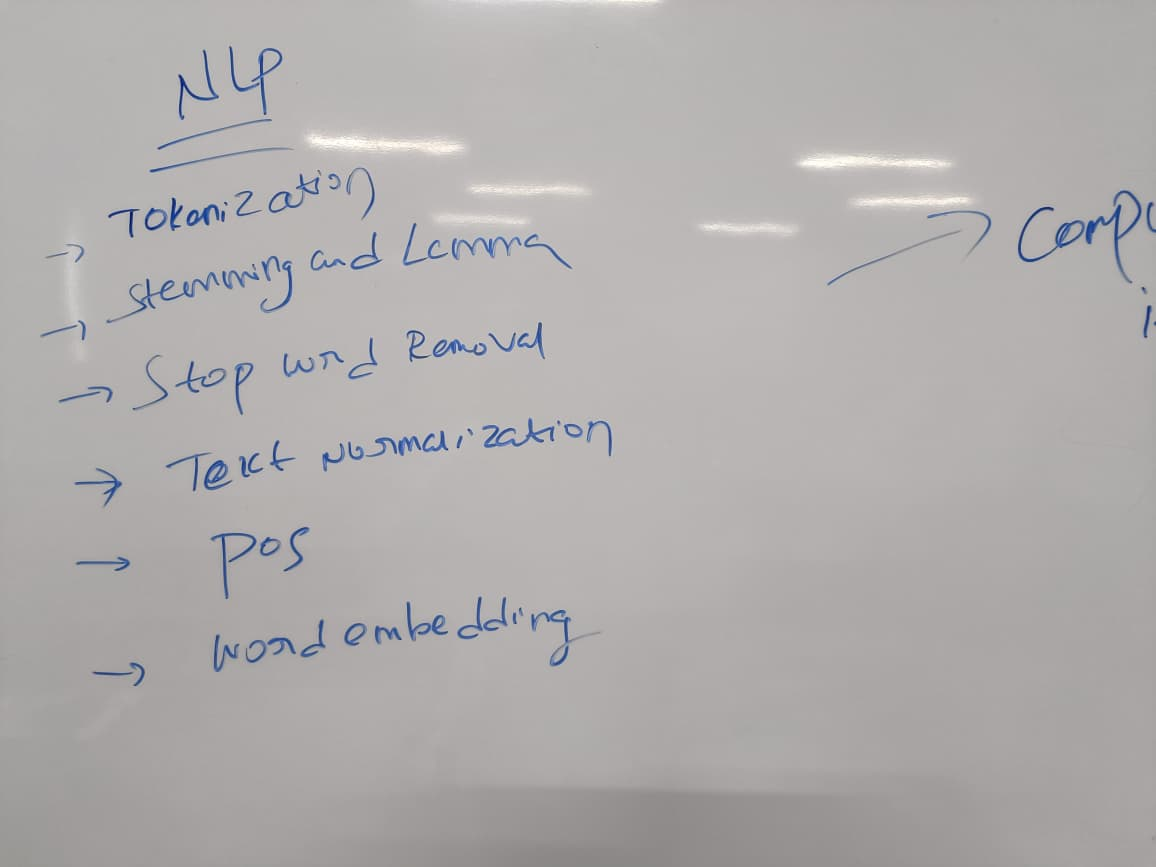 NLP
→ Tokenization
→ Stemming and Lemma
→ Stop word Removal
→ Text Normalization
→ POS
→ word embedding
→